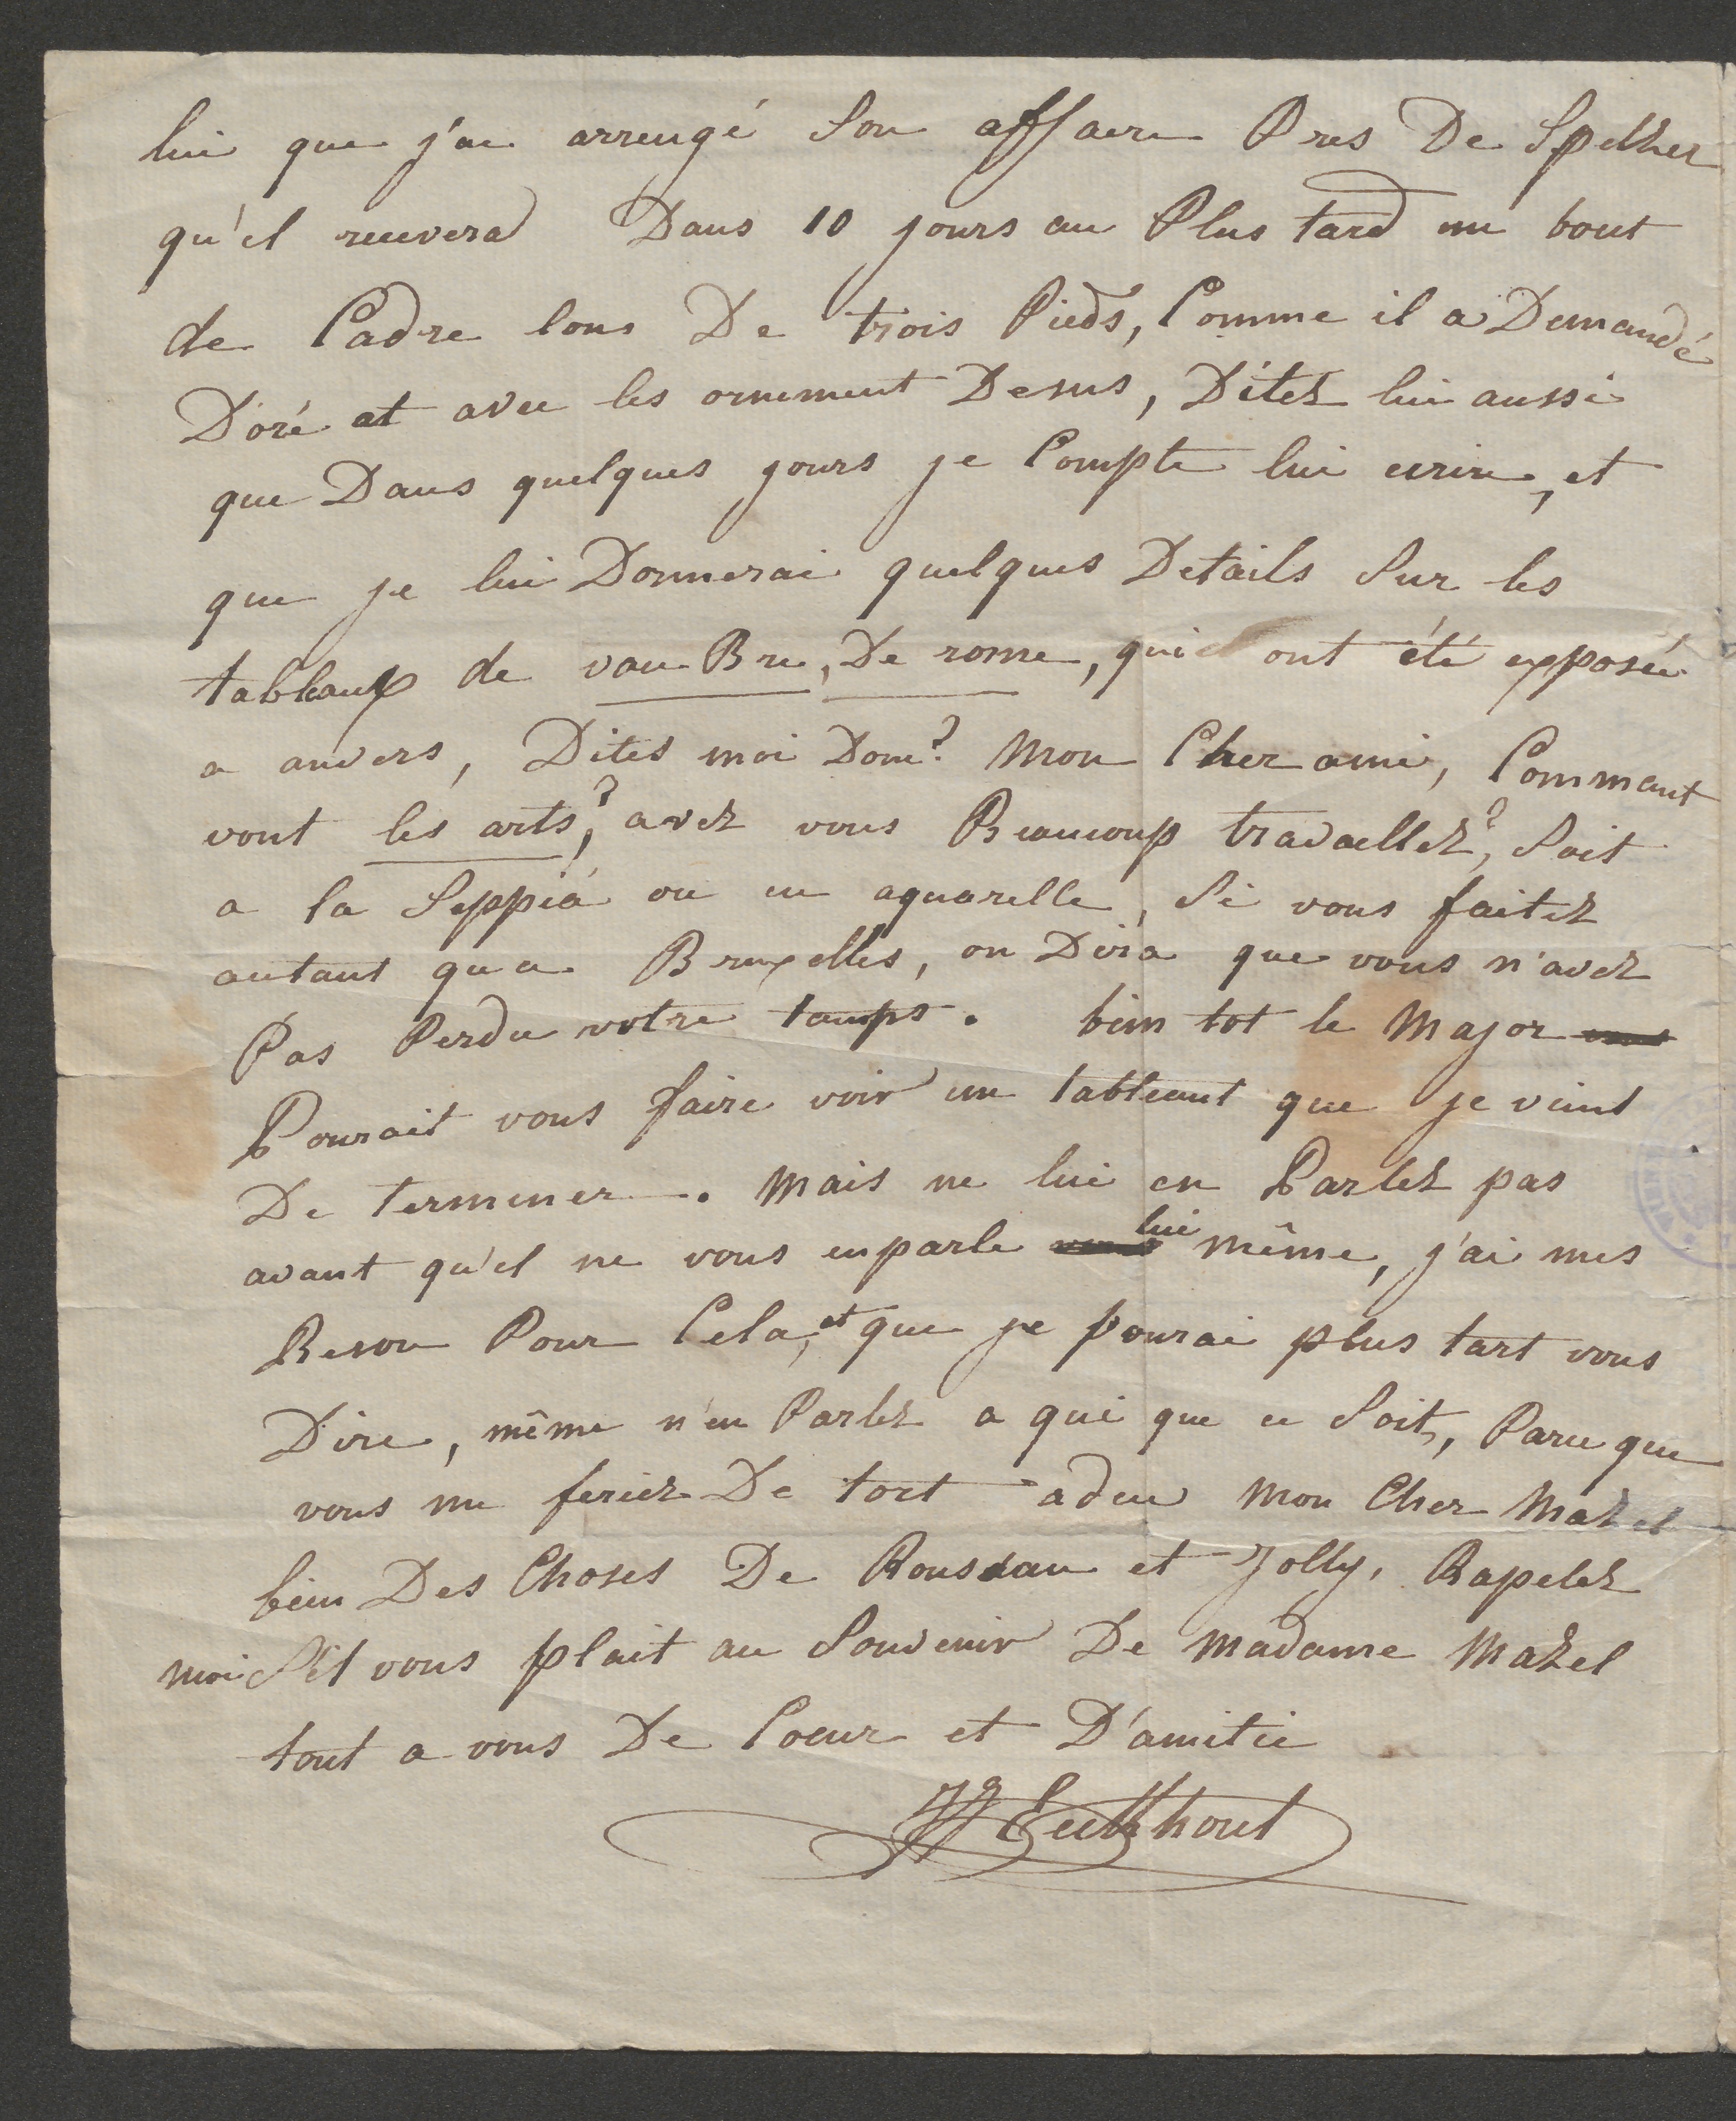 lui que j'ai arrengé Son affaire Pres De Spelher
qu'il receverad Dans 10 jours au Plus tard un bout
de Cadre lons De trois Pieds, Comme il a Demandé
D'oré at avec les ornement Desus, Ditez lui aussi
que Dans quelques jours je Compte lui ecrire, et
que je lui Donnerai quelques Details Sur les
tableaux de van Bre, De rome, qui ont été expposée
a anvers, Dites moi Donc? Mon Cher ami, Commant
vont les arts,? avez vous Beaucoup travaillez,? Soit
a la Seppia ou en aquarelle, Si vous faitez
autant qu a Bruxelles, on Dira que vous n'avez
Pas Perdu votre tamps. bien tot le Major
Pourait vous faire voir un tableaut que je vient
De terminer. Mais ne lui en Parlez pas
avant qu'il ne vous en parle lui même, j'ai mes
Reson Pour Cela, et que je pourai plus tart vous
Dire, même n'en Parlez a qui que ce Soit, Parce que
vous me feriez De tort adeu Mon Cher Mazel
bien Des Choses De Rousseau et Jolly, Rapelez
moi S'il vous plait au Souvenir De Madame Mazel
tout a vous De Coeur et D'amitie
JJ Eeckhout